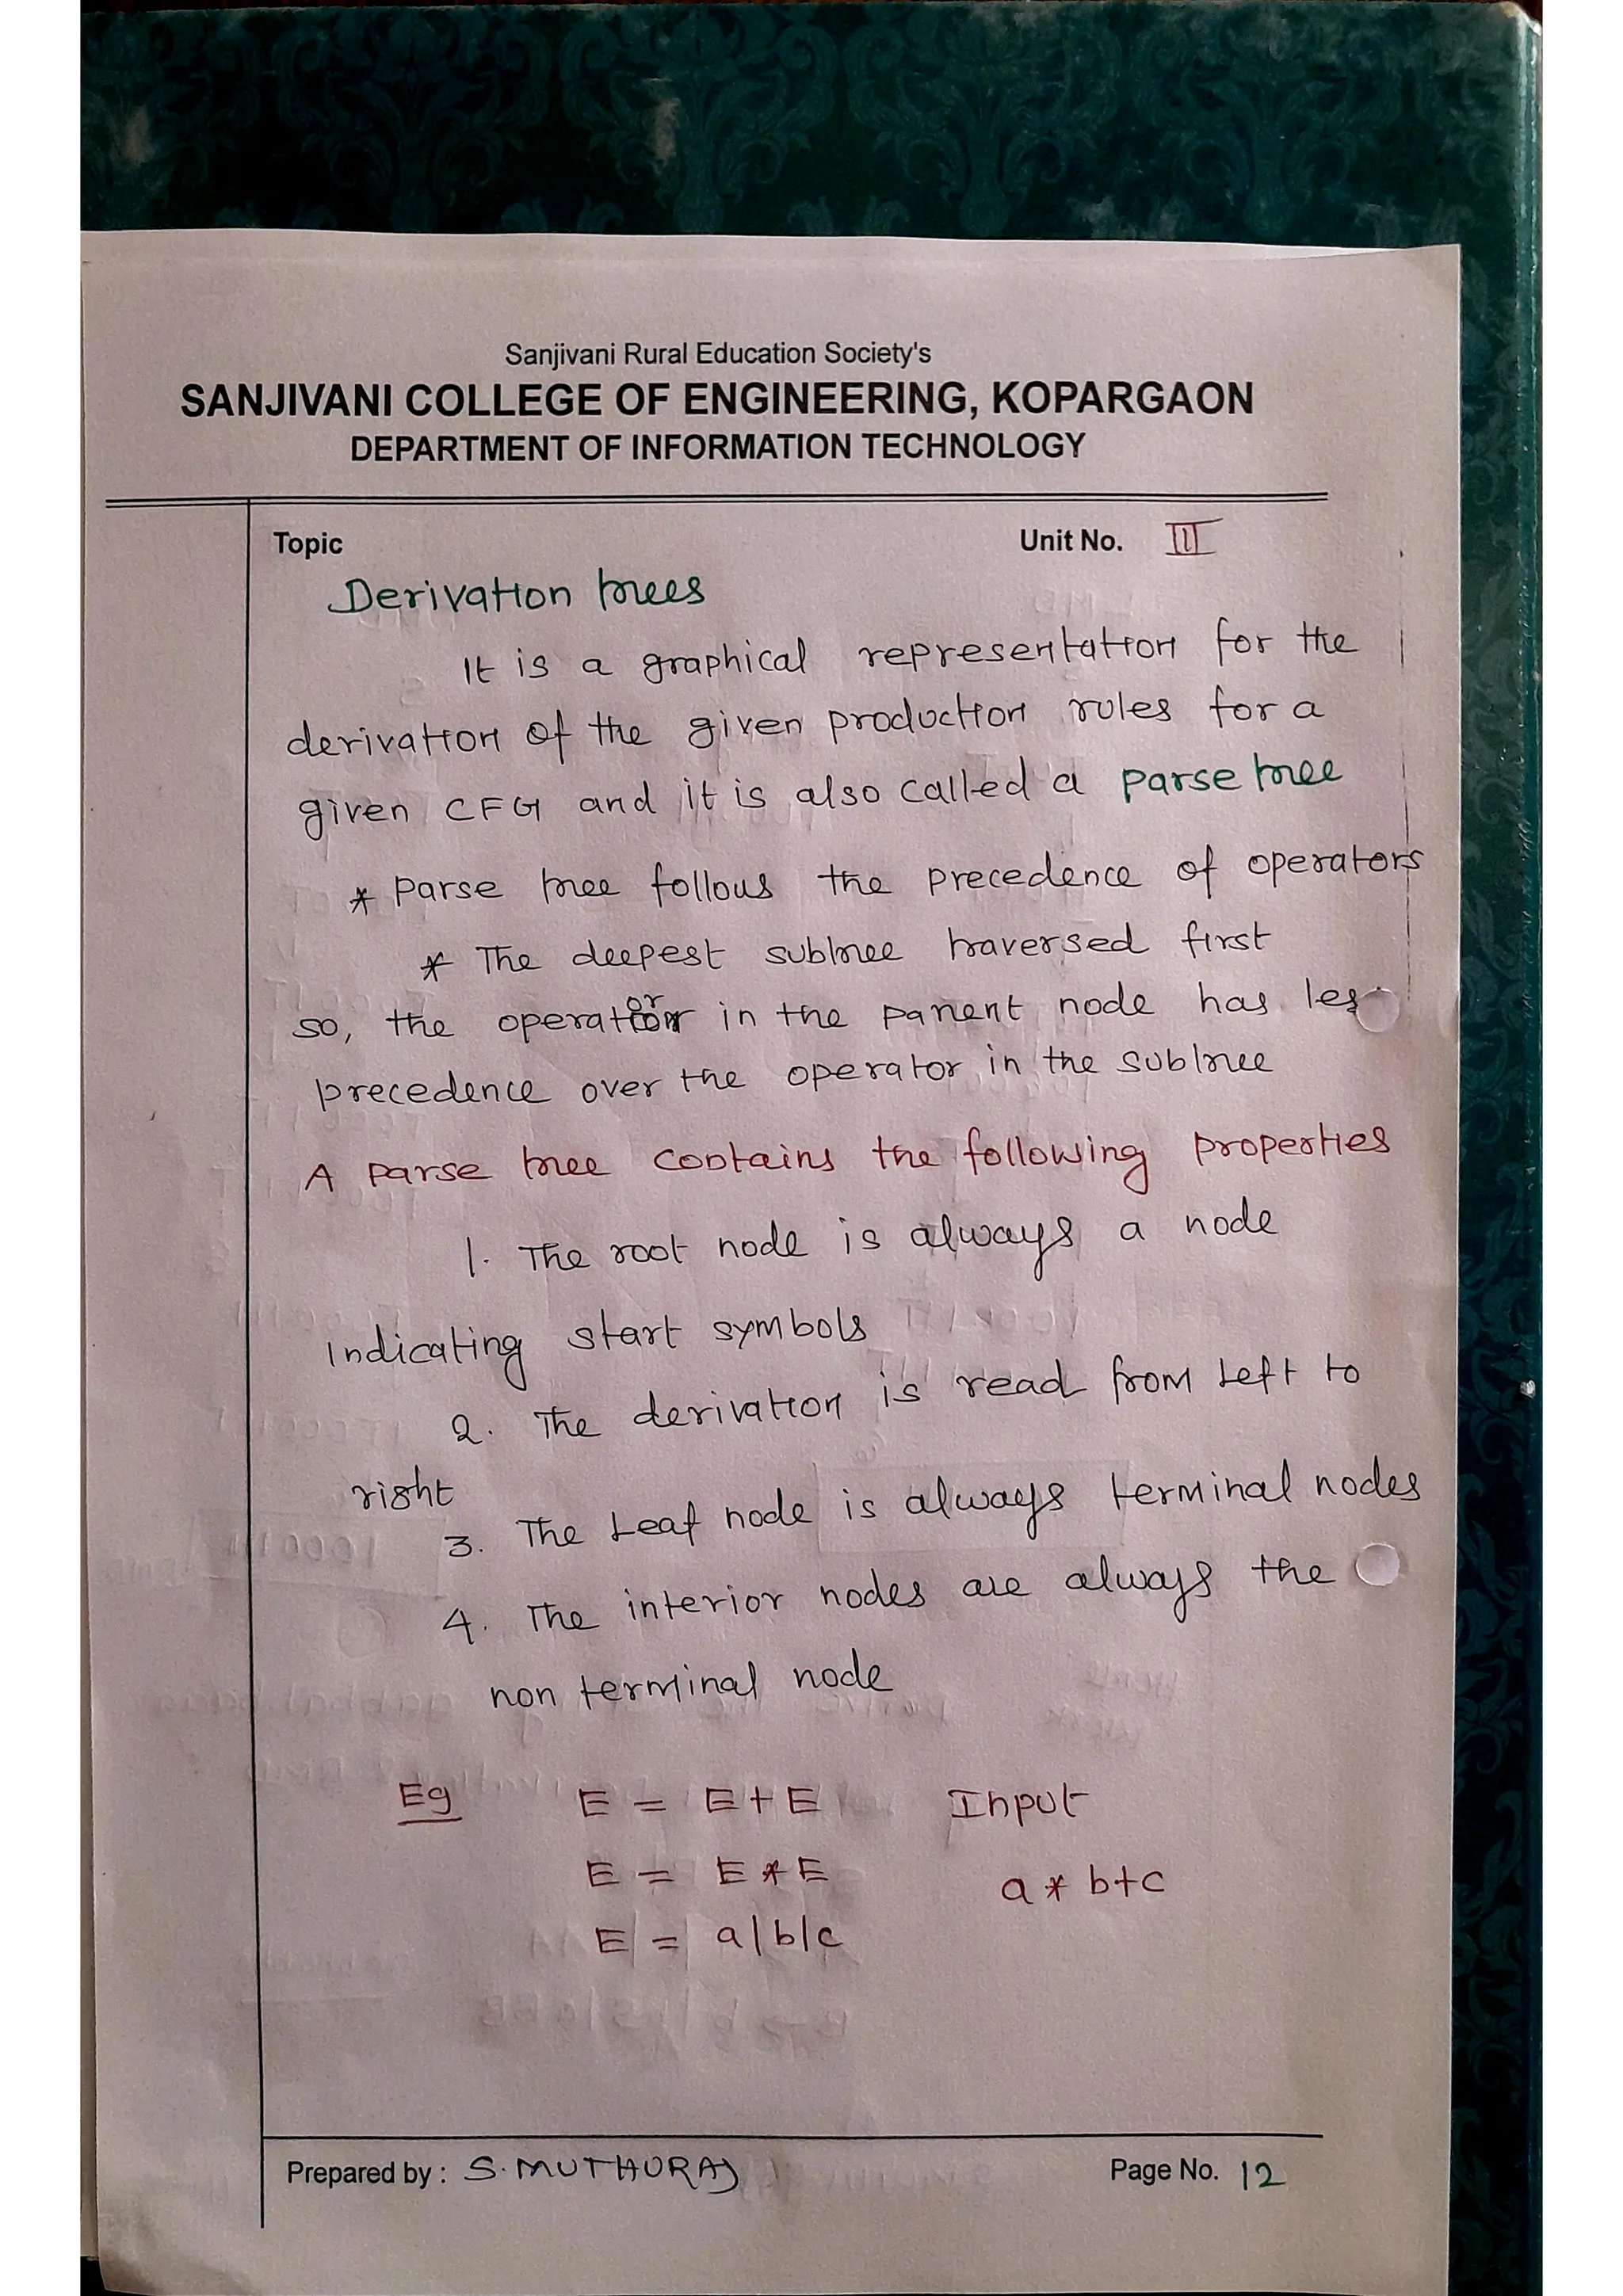 Sanjivani Rural Education Society's
SANJIVANI COLLEGE OF ENGINEERING, KOPARGAON
DEPARTMENT OF INFORMATION TECHNOLOGY
Topic Unit No. III
Derivation trees
It is a graphical representation for the
derivation of the given production rules for a
given CFG and it is also called a parse tree
* Parse tree follows the precedence of operators
* The deepest subtree traversed first
so, the operator in the parent node has les
precedence over the operator in the subtree
A parse tree contains the following properties
1. The root node is always a node
indicating start symbols
2. The derivation is read from left to
right
3. The leaf node is always terminal nodes
4. The interior nodes are always the
non terminal node
Eg E = E+E Input
E = E*E a * b+c
E = a|b|c
Prepared by : S. MUTHURAJ Page No. 12